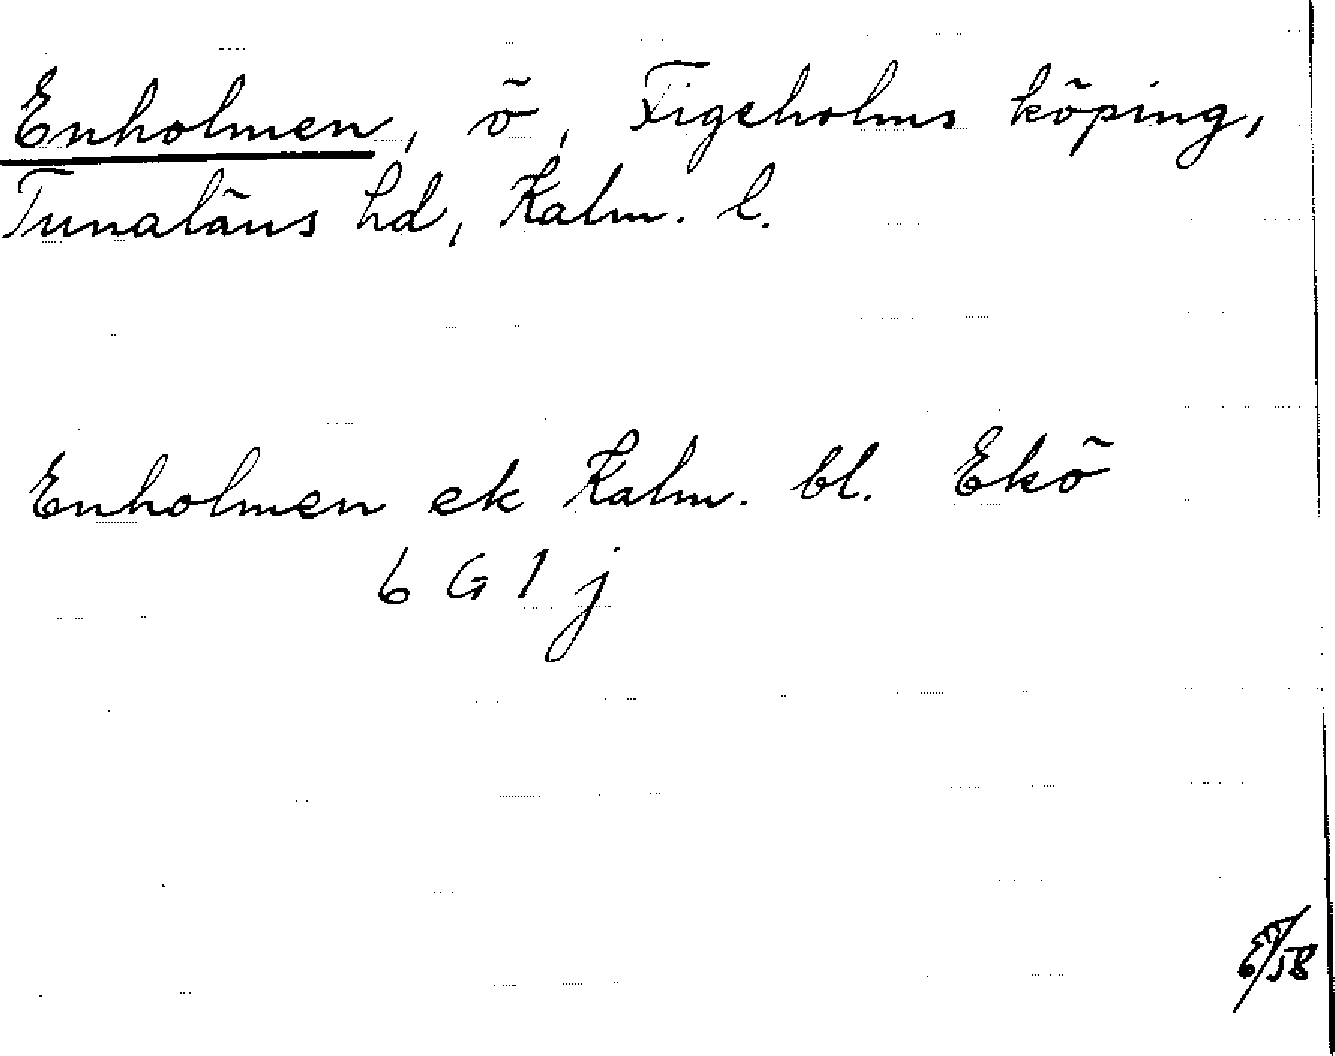 Enholmen, ö, Figeholms köping,
Tunaläns hd, Kalm. l.
Enholmen ek Kalm. bl. Ekö
6 G 1 j